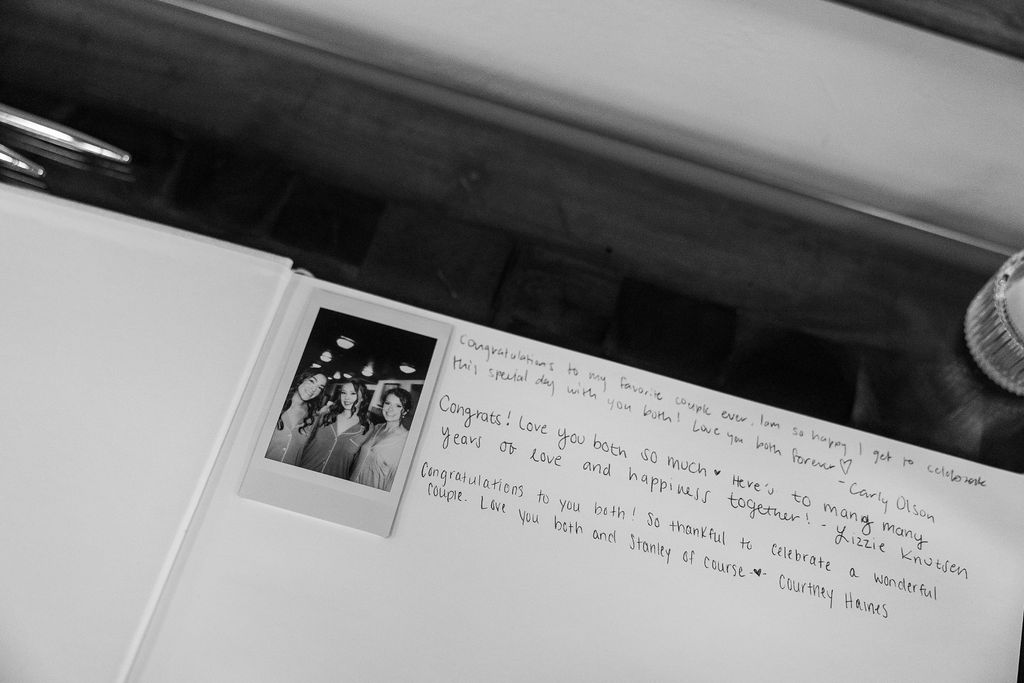 Congratulations to my favorite couple ever. I am so happy I get to celebrate
this special day with you both! Love you both forever ♡
- Carly Olson
Congrats! Love you both so much ♥ Here's to many many
years of love and happiness together! - Lizzie Knutsen
Congratulations to you both! So thankful to celebrate a wonderful
couple. Love you both and Stanley of course -♥- Courtney Haines